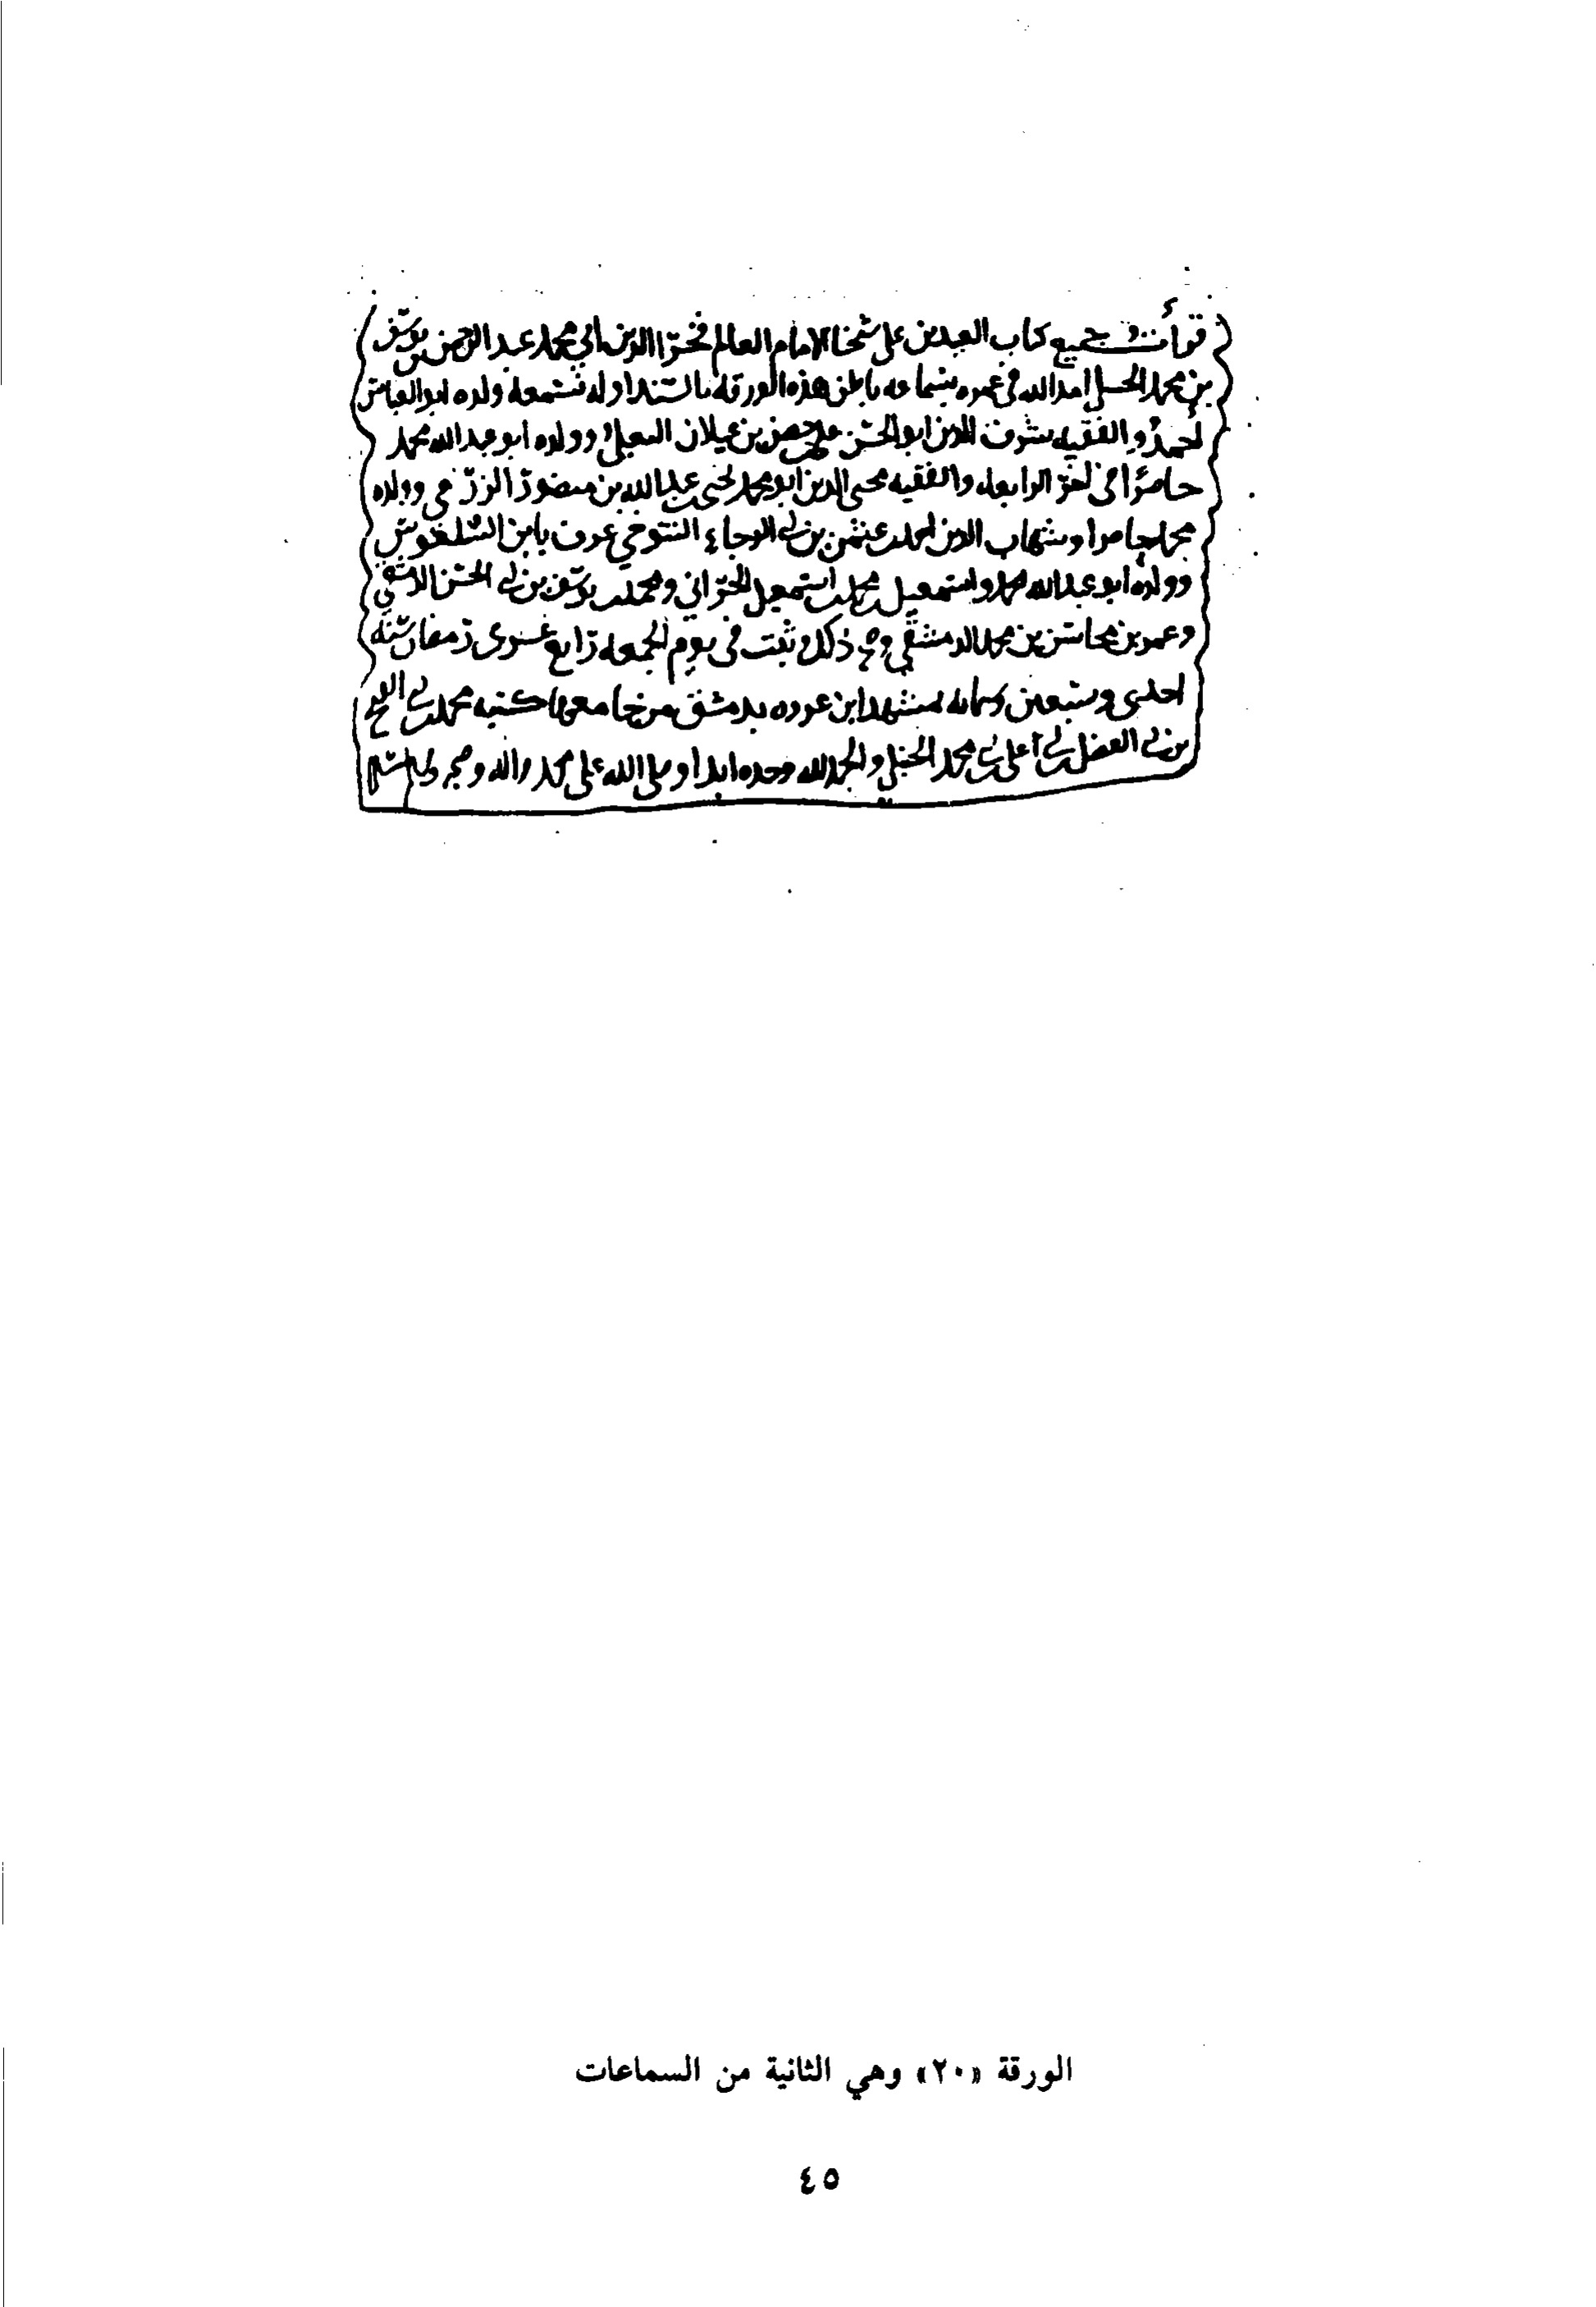 قرأت جميع كتاب العيدين على شيخنا الامام العالم فخر الدين ابي محمد عبد الرحمن بن يوسف
بن محمد الحنبلي امد الله في عمره بسماعه باطن هذه الورقة بالسند اوله فسمعه ولده ابو العباس
احمد والفقيه شرف الدين ابو الحسن علي بن حصن بن غيلان البعلي وولده ابو عبد الله محمد
حاضرا في اخر الرابعه والفقيه محيي الدين ابو محمد يحيى بن عبد الله بن منصور الزرعي وولده
محمد حاضرا وشهاب الدين احمد بن عثمن بن ابي الرجاء التنوخي عرف بابن السلغوس
وولده ابو عبد الله محمد واسمعيل بن محمد بن اسمعيل الحراني ومحمد بن يوسف بن ابي الحسن
وعمر بن محاسن بن محمد الدمشقي وصح ذلك وثبت في يوم الجمعه رابع عشرى رمضان سنة
احدى وسبعين وستمائه بمشهد ابن عروه بدمشق من جامعها كتبه محمد بن ابي الفتح
بن ابي الفضل بن ابي علي بن محمد الحنبلي والحمد لله وحده ابدا وصلى الله على محمد واله وصحبه وسلم
الورقة «٢٠» وهي الثانية من السماعات
٤٥